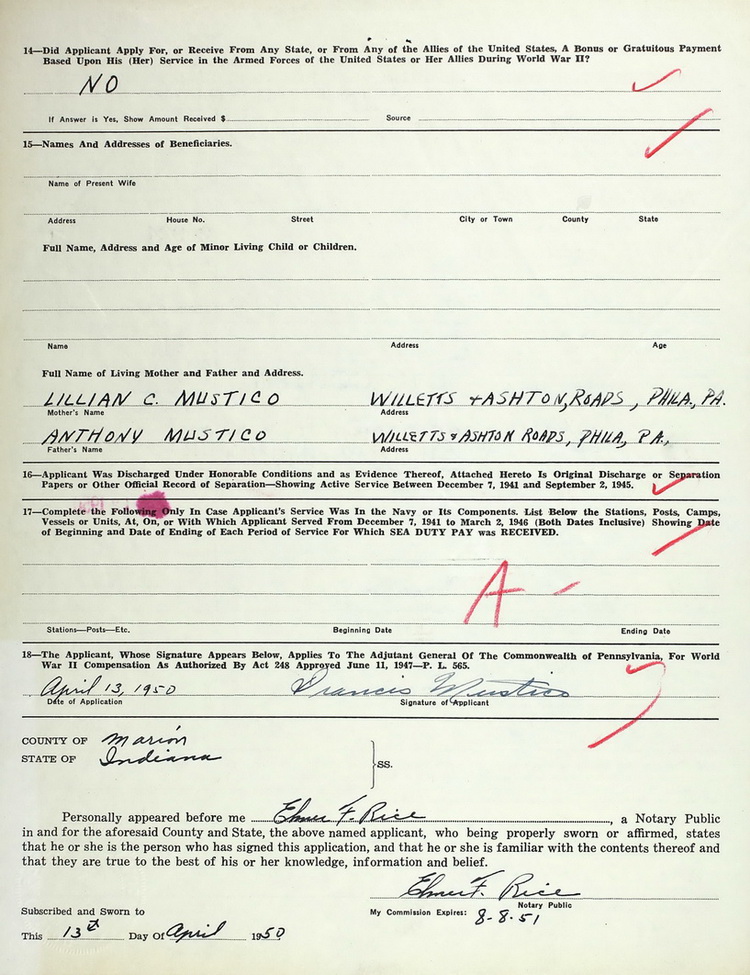 14—Did Applicant Apply For, or Receive From Any State, or From Any of the Allies of the United States, A Bonus or Gratuitous Payment
Based Upon His (Her) Service in the Armed Forces of the United States or Her Allies During World War II?
NO
If Answer is Yes, Show Amount Received $ Source
15—Names And Addresses of Beneficiaries.
Name of Present Wife
Address House No. Street City or Town County State
Full Name, Address and Age of Minor Living Child or Children.
Name Address Age
Full Name of Living Mother and Father and Address.
LILLIAN C. MUSTICO WILLETTS & ASHTON, ROADS, PHILA., PA.
Mother's Name Address
ANTHONY MUSTICO WILLETTS & ASHTON ROADS, PHILA, PA.,
Father's Name Address
16—Applicant Was Discharged Under Honorable Conditions and as Evidence Thereof, Attached Hereto Is Original Discharge or Separation
Papers or Other Official Record of Separation—Showing Active Service Between December 7, 1941 and September 2, 1945.
17—Complete the Following Only In Case Applicant's Service Was In the Navy or Its Components. List Below the Stations, Posts, Camps,
Vessels or Units, At, On, or With Which Applicant Served From December 7, 1941 to March 2, 1946 (Both Dates Inclusive) Showing Date
of Beginning and Date of Ending of Each Period of Service For Which SEA DUTY PAY was RECEIVED.
A -
Stations—Posts—Etc. Beginning Date Ending Date
18—The Applicant, Whose Signature Appears Below, Applies To The Adjutant General Of The Commonwealth of Pennsylvania, For World
War II Compensation As Authorized By Act 248 Approved June 11, 1947—P. L. 565.
April 13, 1950 Francis Mustico
Date of Application Signature of Applicant
COUNTY OF Marion
STATE OF Indiana
SS.
Personally appeared before me Elmer F. Rice, a Notary Public
in and for the aforesaid County and State, the above named applicant, who being properly sworn or affirmed, states
that he or she is the person who has signed this application, and that he or she is familiar with the contents thereof and
that they are true to the best of his or her knowledge, information and belief.
Elmer F. Rice
Notary Public
Subscribed and Sworn to
My Commission Expires: 8-8-51
This 13th Day Of April 1950